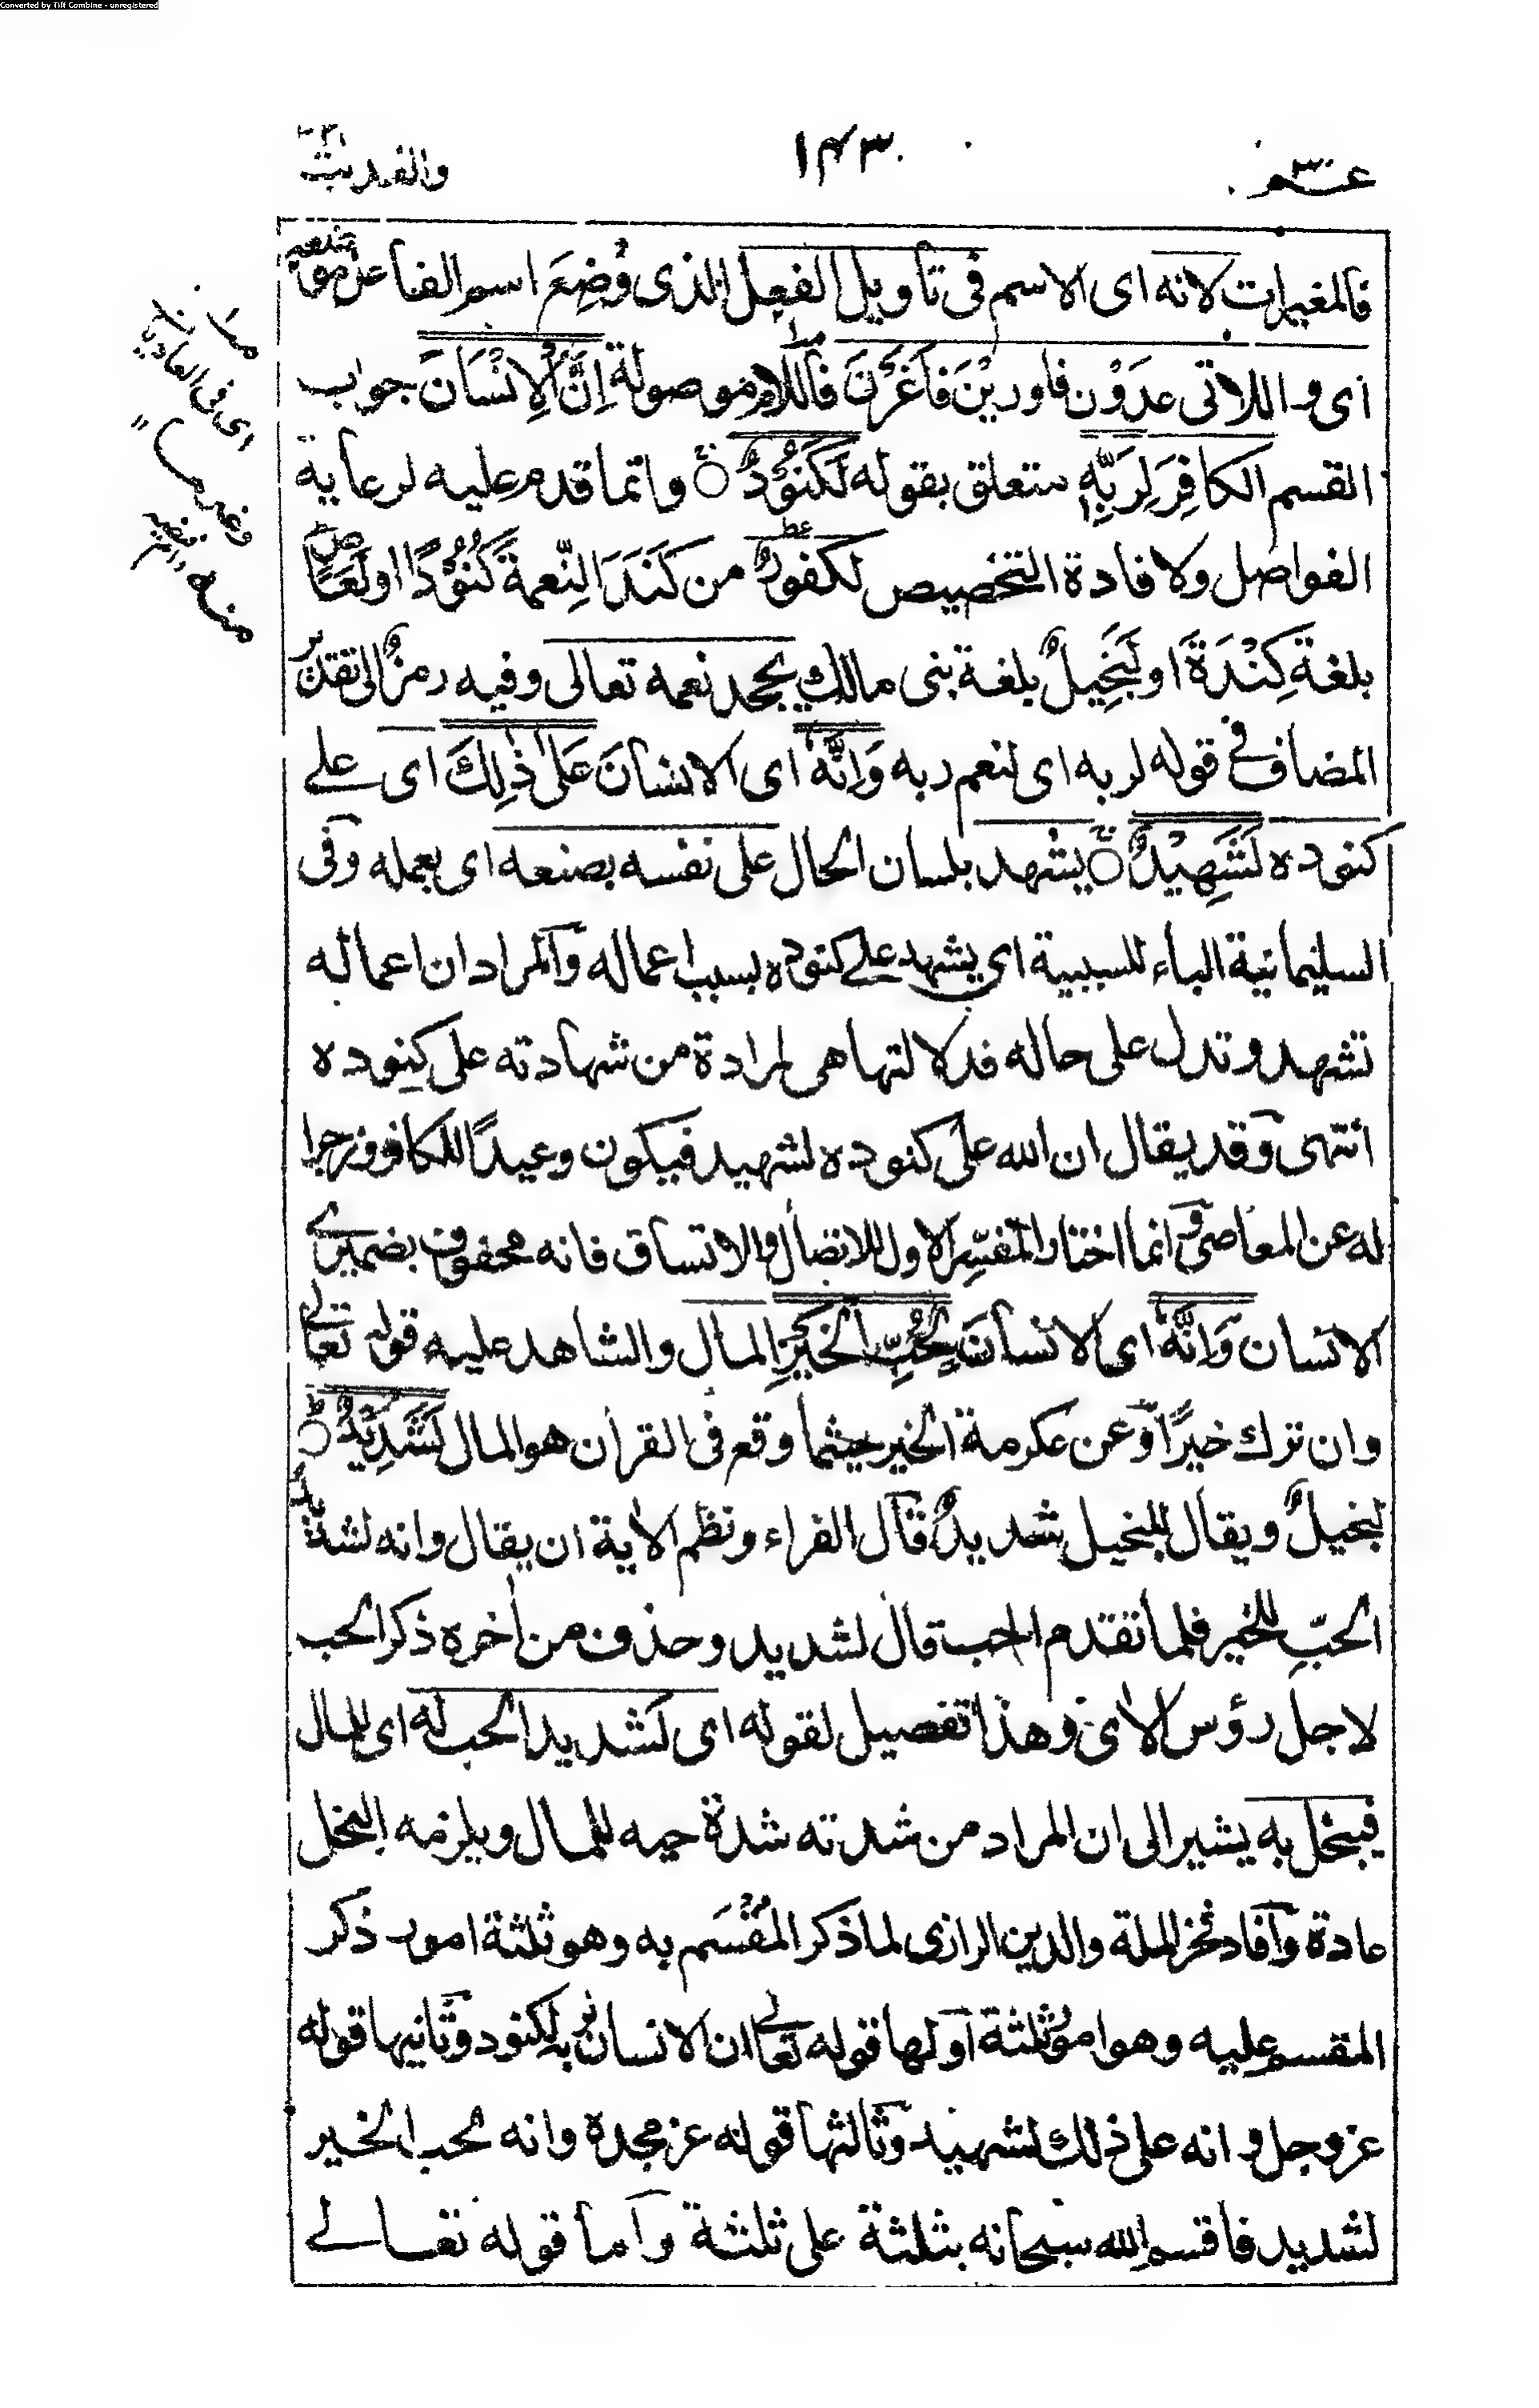 Converted by Tiff Combine - unregistered
عـــم ٣٠
١٤٣
والعديت
فالمغيرات لانه اى الاسم فى تأويل الفعل الذى وُضِعَ اسم الفاعل موضعه
اى واللاتى عدَوْن فاورَيْنَ فاَغَرْنَ فاللام موصولة اِنَّ الْاِنْسَانَ جواب
القسم الكافِرَ لِرَبِّهٖ متعلق بقوله لَكَنُوْدٌ وانما قدم عليه لرعاية
الفواصل ولافادة التخصيص لكفورٌ من كَنَدَ النِّعمةَ كُنُوْدًا او لَعَاصٍ
بلغة كِنْدَةَ او لَبَخِيلٌ بلغة بنى مالك يجحد نعمه تعالى وفيه رمزٌ الى تقدير
المضاف فى قوله لربه اى لنعم ربه وَاِنَّهٗ اى الانسانَ عَلٰى ذٰلِكَ اى على
كنوده لَشَهِيْدٌ يشهد بلسان الحال على نفسه بصنعه اى بعمله وفى
السليمانية الباء للسببية اى يشهد على كنوده بسبب اعماله والمراد ان اعماله
تشهد وتدل على حاله فدلالتها هى المرادة من شهادته على كنوده
انتهى وقد يقال ان الله على كنوده لشهيد فيكون وعيدًا للكافر وزجرا
له عن المعاصى وانما اختار المفسِّر الاول للاتصال والاتساق فانه محفوف بضميرى
الانسان وَاِنَّهٗ اى الانسانَ لِحُبِّ الْخَيْرِ المال والشاهد عليه قوله تعالى
وان ترك خيرًا وعن عكرمة الخير حيثما وقع فى القرأن هو المال لَشَدِيْدٌ
لبخيلٌ ويقال للبخيل شديدٌ قال الفراء ونظم الأية ان يقال وانه لشديد
الحبِّ للخير فلما تقدم الحب قال لشديد وحذف من أخره ذكر الحب
لاجل رؤس الأى وهذا تفصيل لقوله اى لشديد الحب له اى للمال
فيبخل به يشير الى ان المراد من شدته شدة حبه للمال ويلزمه البخل
عادة وافاد فخر الملة والدين الرازى لما ذكر المُقْسَم به وهو ثلثة امور ذكر
المقسم عليه وهو امور ثلثة اولها قوله تعالى ان الانسان لربه لكنود وثانيها قوله
عزوجل وانه على ذلك لشهيد وثالثها قوله عز مجده وانه لحب الخير
لشديد فاقسم الله سبحانه بثلثة على ثلثة واما قوله تعالى